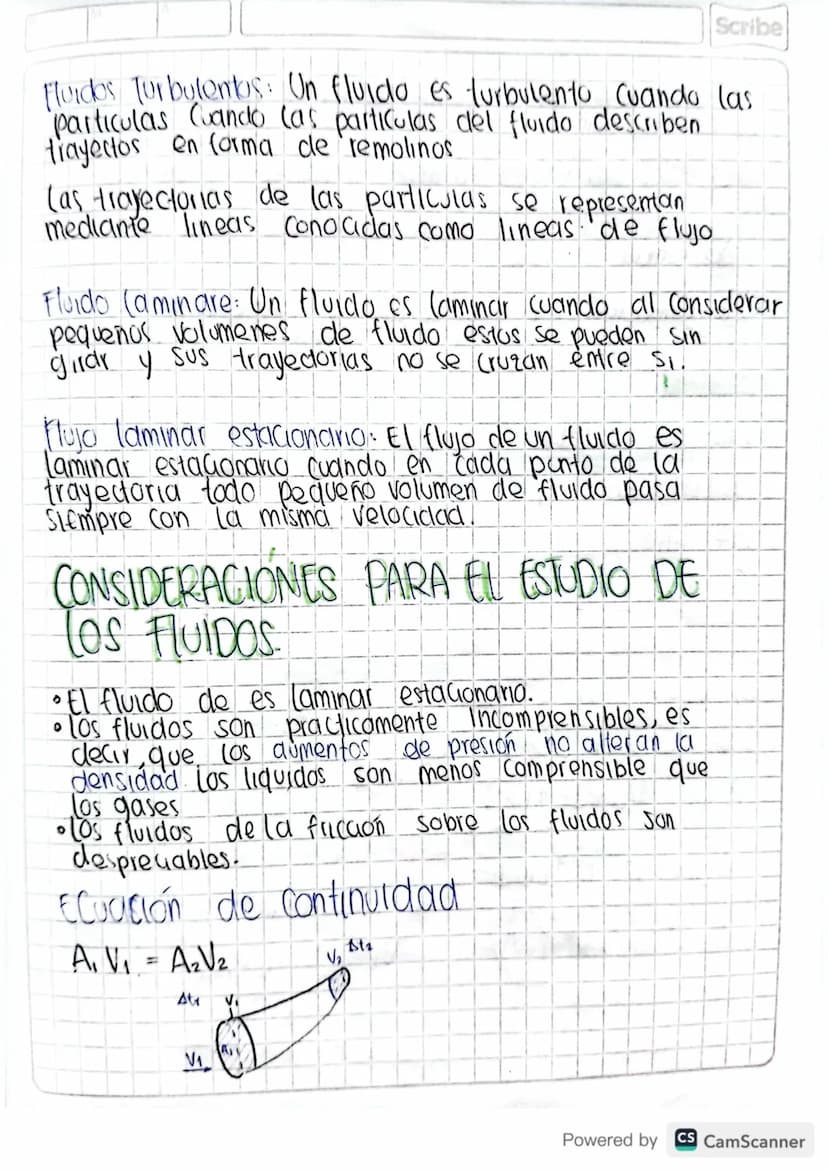 Scribe
Fluidos Turbulentos: Un fluido es turbulento cuando las
particulas Cuando las particulas del fluido describen
trayectos en forma de remolinos
Las trayectorias de las particulas se representan
mediante lineas conocidas como lineas de flujo
Fluido laminare: Un fluido es laminar cuando al considerar
pequeños volumenes de fluido estos se pueden sin
girar y sus trayectorias no se cruzan entre si.
Flujo laminar estacionario: El flujo de un fluido es
laminar estacionario cuando en cada punto de la
trayectoria todo pequeño volumen de fluido pasa
siempre con la misma velocidad.
CONSIDERACIÓNES PARA EL ESTUDIO DE
LOS FLUIDOS.
• El fluido de es laminar estacionario.
• Los fluidos son practicamente incomprensibles, es
decir, que los aumentos de presión no alteran la
densidad. Los liquidos son menos comprensible que
los gases
• Los fluidos de la fricción sobre los fluidos son
despreciables.
Ecuación de continuidad
A₁ V₁ = A₂V₂
V₂ Δt₂
Δt₁ V₁
A₁
V₁
Powered by CS CamScanner